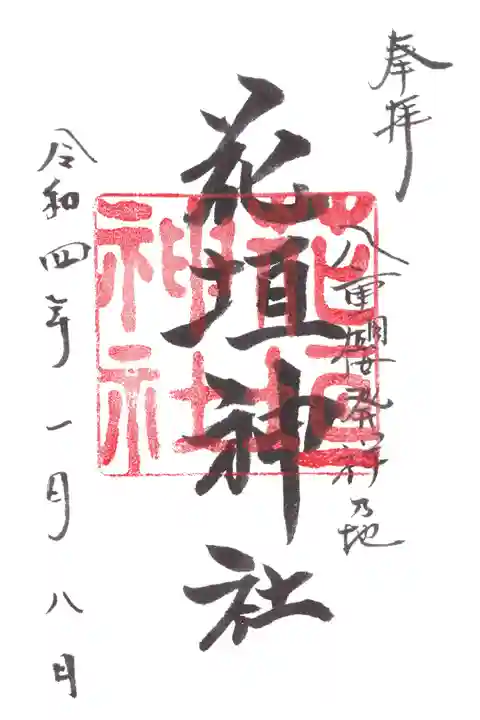 奉拝
八重櫻発祥乃地
花垣神社
花垣神社
令和四年一月八日